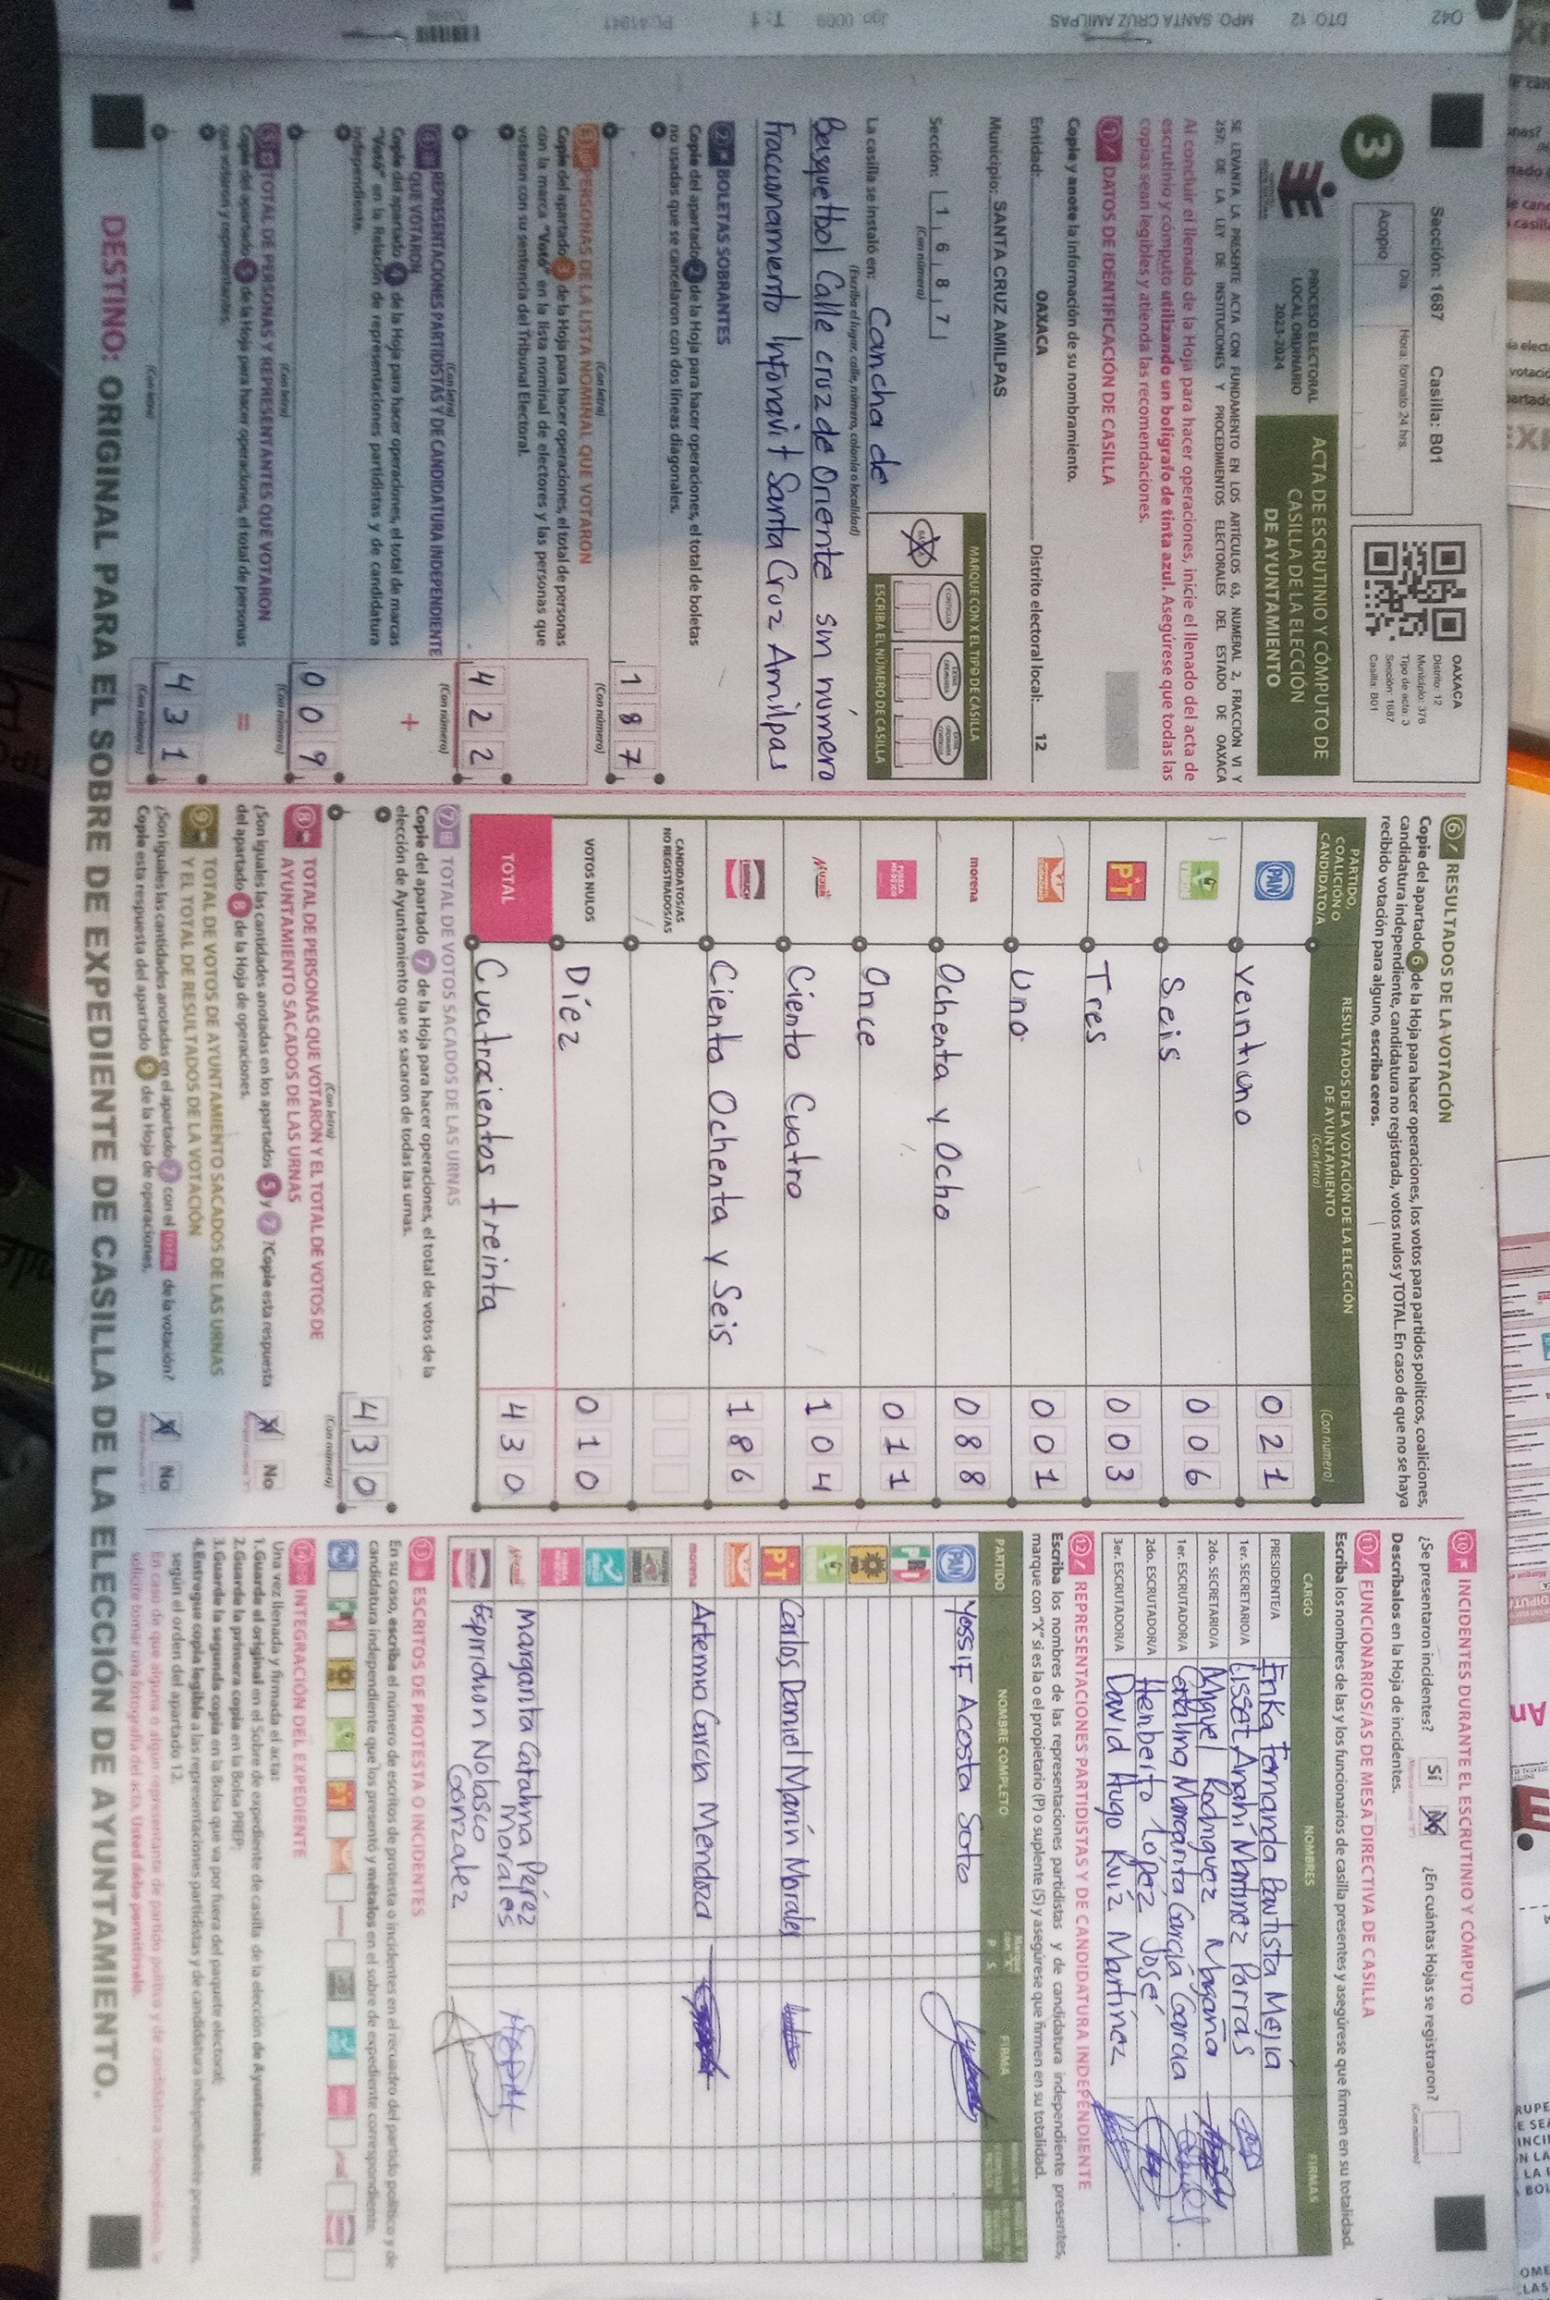 042 DTO. 12 MPO. SANTA CRUZ AMILPAS
Sección: 1687 Casilla: B01
Día. Hora: formato 24 hrs.
Acopio
3
OAXACA
Distrito: 12
Municipio: 376
Tipo de acta: 3
Sección: 1687
Casilla: B01
PROCESO ELECTORAL
LOCAL ORDINARIO
2023-2024
ACTA DE ESCRUTINIO Y CÓMPUTO DE
CASILLA DE LA ELECCIÓN
DE AYUNTAMIENTO
SE LEVANTA LA PRESENTE ACTA CON FUNDAMENTO EN LOS ARTÍCULOS 63, NUMERAL 2, FRACCIÓN VI Y
257; DE LA LEY DE INSTITUCIONES Y PROCEDIMIENTOS ELECTORALES DEL ESTADO DE OAXACA
Al concluir el llenado de la Hoja para hacer operaciones, inicie el llenado del acta de
escrutinio y cómputo utilizando un bolígrafo de tinta azul. Asegúrese que todas las
copias sean legibles y atienda las recomendaciones.
1 DATOS DE IDENTIFICACIÓN DE CASILLA
Copie y anote la información de su nombramiento.
Entidad: OAXACA Distrito electoral local: 12
Municipio: SANTA CRUZ AMILPAS
Sección: 1 6 8 7
(Con número)
MARQUE CON X EL TIPO DE CASILLA
ESCRIBA EL NÚMERO DE CASILLA
La casilla se instaló en: Cancha de
(Escriba el lugar, calle, número, colonia o localidad)
Basquetbol Calle cruz de Oriente sin número
Fraccionamiento Infonavit Santa Cruz Amilpas
2 BOLETAS SOBRANTES
Copie del apartado 2 de la Hoja para hacer operaciones, el total de boletas
no usadas que se cancelaron con dos líneas diagonales.
1 8 7
(Con letra) (Con número)
3 PERSONAS DE LA LISTA NOMINAL QUE VOTARON
Copie del apartado 3 de la Hoja para hacer operaciones, el total de personas
con la marca "Votó" en la lista nominal de electores y las personas que
votaron con su sentencia del Tribunal Electoral.
4 2 2
(Con letra) (Con número)
4 REPRESENTACIONES PARTIDISTAS Y DE CANDIDATURA INDEPENDIENTE
QUE VOTARON
Copie del apartado 4 de la Hoja para hacer operaciones, el total de marcas
"Votó" en la Relación de representaciones partidistas y de candidatura
independiente.
+
0 0 9
(Con letra) (Con número)
5 TOTAL DE PERSONAS Y REPRESENTANTES QUE VOTARON
Copie del apartado 5 de la Hoja para hacer operaciones, el total de personas
que votaron y representantes.
=
4 3 1
(Con letra) (Con número)
6 RESULTADOS DE LA VOTACIÓN
Copie del apartado 6 de la Hoja para hacer operaciones, los votos para partidos políticos, coaliciones,
candidatura independiente, candidatura no registrada, votos nulos y TOTAL. En caso de que no se haya
recibido votación para alguno, escriba ceros.
PARTIDO, COALICIÓN O CANDIDATO/A
RESULTADOS DE LA VOTACIÓN DE LA ELECCIÓN
DE AYUNTAMIENTO
(Con letra) (Con número)
PAN Veintiuno 0 2 1
Seis 0 0 6
PT Tres 0 0 3
Uno 0 0 1
morena Ochenta y Ocho 0 8 8
FUERZA MÉXICO Once 0 1 1
Mujer Ciento Cuatro 1 0 4
Ciento Ochenta y Seis 1 8 6
CANDIDATOS/AS NO REGISTRADOS/AS
VOTOS NULOS Diez 0 1 0
TOTAL Cuatrocientos treinta 4 3 0
7 TOTAL DE VOTOS SACADOS DE LAS URNAS
Copie del apartado 7 de la Hoja para hacer operaciones, el total de votos de la
elección de Ayuntamiento que se sacaron de todas las urnas.
4 3 0
(Con letra) (Con número)
8 TOTAL DE PERSONAS QUE VOTARON Y EL TOTAL DE VOTOS DE
AYUNTAMIENTO SACADOS DE LAS URNAS
¿Son iguales las cantidades anotadas en los apartados 5 y 7? Copie esta respuesta
del apartado 8 de la Hoja de operaciones.
No
9 TOTAL DE VOTOS DE AYUNTAMIENTO SACADOS DE LAS URNAS
Y EL TOTAL DE RESULTADOS DE LA VOTACIÓN
¿Son iguales las cantidades anotadas en el apartado 7 con el TOTAL de la votación?
Copie esta respuesta del apartado 9 de la Hoja de operaciones.
No
10 INCIDENTES DURANTE EL ESCRUTINIO Y CÓMPUTO
¿Se presentaron incidentes? Sí No ¿En cuántas Hojas se registraron?
(Con número)
Descríbalos en la Hoja de incidentes.
11 FUNCIONARIOS/AS DE MESA DIRECTIVA DE CASILLA
Escriba los nombres de las y los funcionarios de casilla presentes y asegúrese que firmen en su totalidad.
CARGO NOMBRES FIRMAS
PRESIDENTE/A Erika Fernanda Bautista Mejía
1er. SECRETARIO/A Lisset Anahí Martínez Porras
2do. SECRETARIO/A Miguel Rodriguez Magaña
1er. ESCRUTADOR/A Catalina Margarita García García
2do. ESCRUTADOR/A Heriberto López José
3er. ESCRUTADOR/A David Hugo Ruíz Martínez
12 REPRESENTACIONES PARTIDISTAS Y DE CANDIDATURA INDEPENDIENTE
Escriba los nombres de las representaciones partidistas y de candidatura independiente presentes,
marque con "X" si es la o el propietario (P) o suplente (S) y asegúrese que firmen en su totalidad.
PARTIDO NOMBRE COMPLETO P S FIRMA
PAN Yossif Acosta Soto
PRI
PRD
PT Carlos Daniel Marín Morales
morena Artemio García Mendoza
Mujer Margarita Catalina Pérez Morales
Espiridion Nolasco Gonzalez
13 ESCRITOS DE PROTESTA O INCIDENTES
En su caso, escriba el número de escritos de protesta o incidentes en el recuadro del partido político y de
candidatura independiente que los presentó y métalos en el sobre de expediente correspondiente.
14 INTEGRACIÓN DEL EXPEDIENTE
Una vez llenada y firmada el acta:
1.Guarde el original en el Sobre de expediente de casilla de la elección de Ayuntamiento;
2.Guarde la primera copia en la Bolsa PREP;
3.Guarde la segunda copia en la Bolsa que va por fuera del paquete electoral;
4.Entregue copia legible a las representaciones partidistas y de candidatura independiente presentes,
según el orden del apartado 12.
En caso de que alguna o algún representante de partido político y de candidatura independiente, le
solicite tomar una fotografía del acta, Usted debe permitírselo.
DESTINO: ORIGINAL PARA EL SOBRE DE EXPEDIENTE DE CASILLA DE LA ELECCIÓN DE AYUNTAMIENTO.